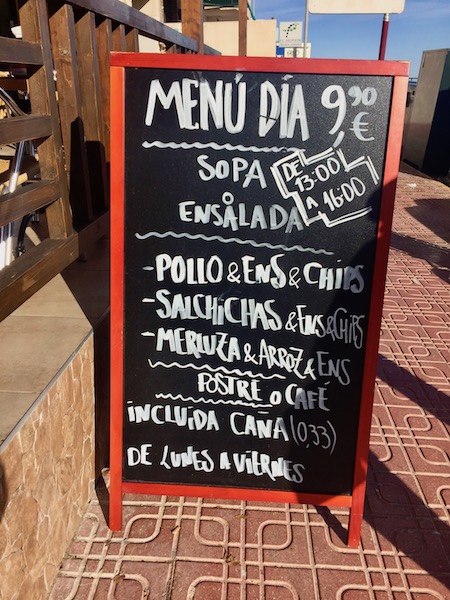 MENÚ DÍA 9,90 €
SOPA
ó
ENSALADA
DE
13:00
A 16:00
-POLLO & ENS & CHIPS
-SALCHICHAS & ENS & CHIPS
-MERLUZA & ARROZ & ENS
POSTRE o CAFÉ
INCLUIDA CAÑA (0,33)
DE LUNES A VIERNES